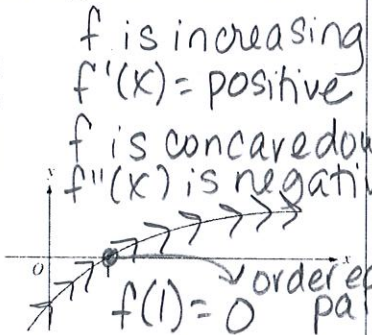 f is increasing
f'(x) = positive
f is concavedow
f''(x) is negati
x
0
ordered
f(1) = 0 pa